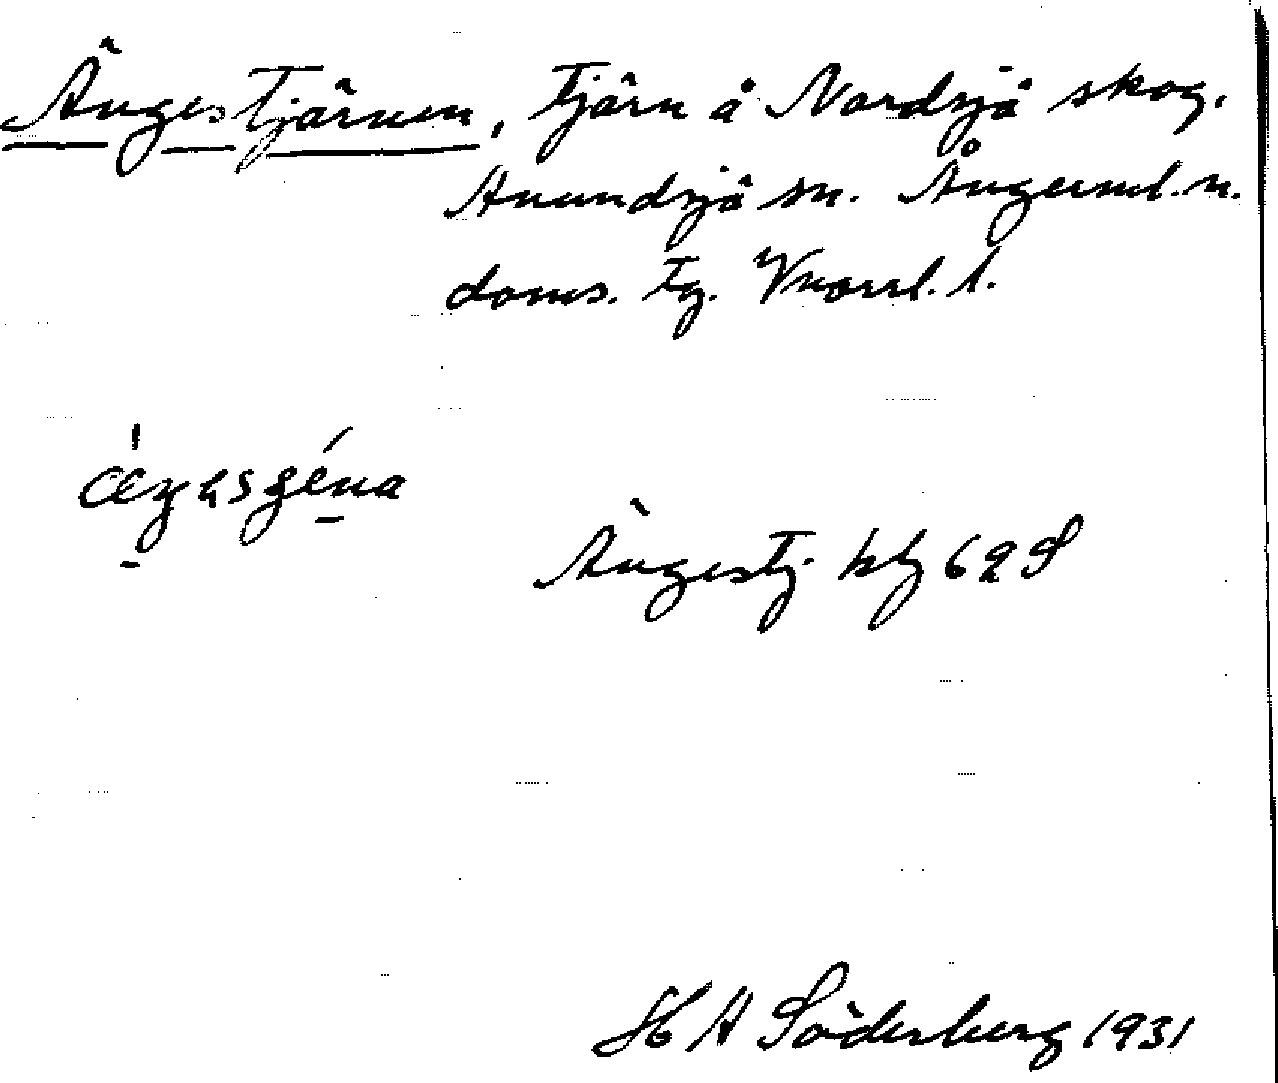 Ängestjärnen, Tjärn å Nordsjö skog,
Anundsjö sn. Ångerml. n.
doms. tg. Vnorrl. l.
Ängestj. kbl 62 S
H A Söderberg 1931